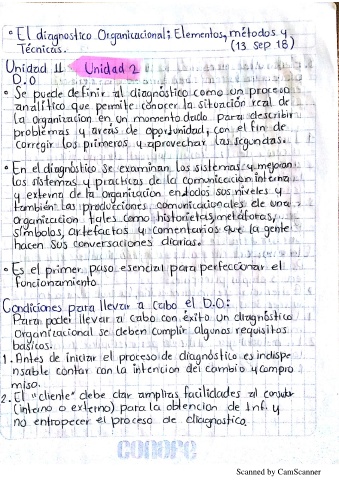 • El diagnostico Organizacional; Elementos, métodos y
Técnicas. (13 sep 18)
Unidad II Unidad 2
D.O
• Se puede definir al diagnóstico como un proceso
analítico que permite conocer la situación real de
la organización en un momento dado para describir
problemas y areas de oportunidad, con el fin de
corregir los primeros y aprovechar las segundas.
• En el diagnóstico se examinan los sistemas y mejoran
los sistemas y practicas de la comunicación interna
y externa de la organización en todos sus niveles y
también las producciones comunicacionales de una
organización tales como historietas, metáforas,
símbolos, artefactos y comentarios que la gente
hacen sus conversaciones diarias.
• Es el primer paso esencial para perfeccionar el
funcionamiento
Condiciones para llevar a cabo el D.O:
Para poder llevar a cabo con éxito un diagnóstico
Organizacional se deben cumplir algunos requisitos
básicos.
1. Antes de iniciar el proceso de diagnóstico es indispe
nsable contar con la intención del cambio y compro
miso.
2. El "cliente" debe dar amplias facilidades al consultor
(interno o externo) para la obtención de inf. y
no entropecer el proceso de diagnostico
Scanned by CamScanner